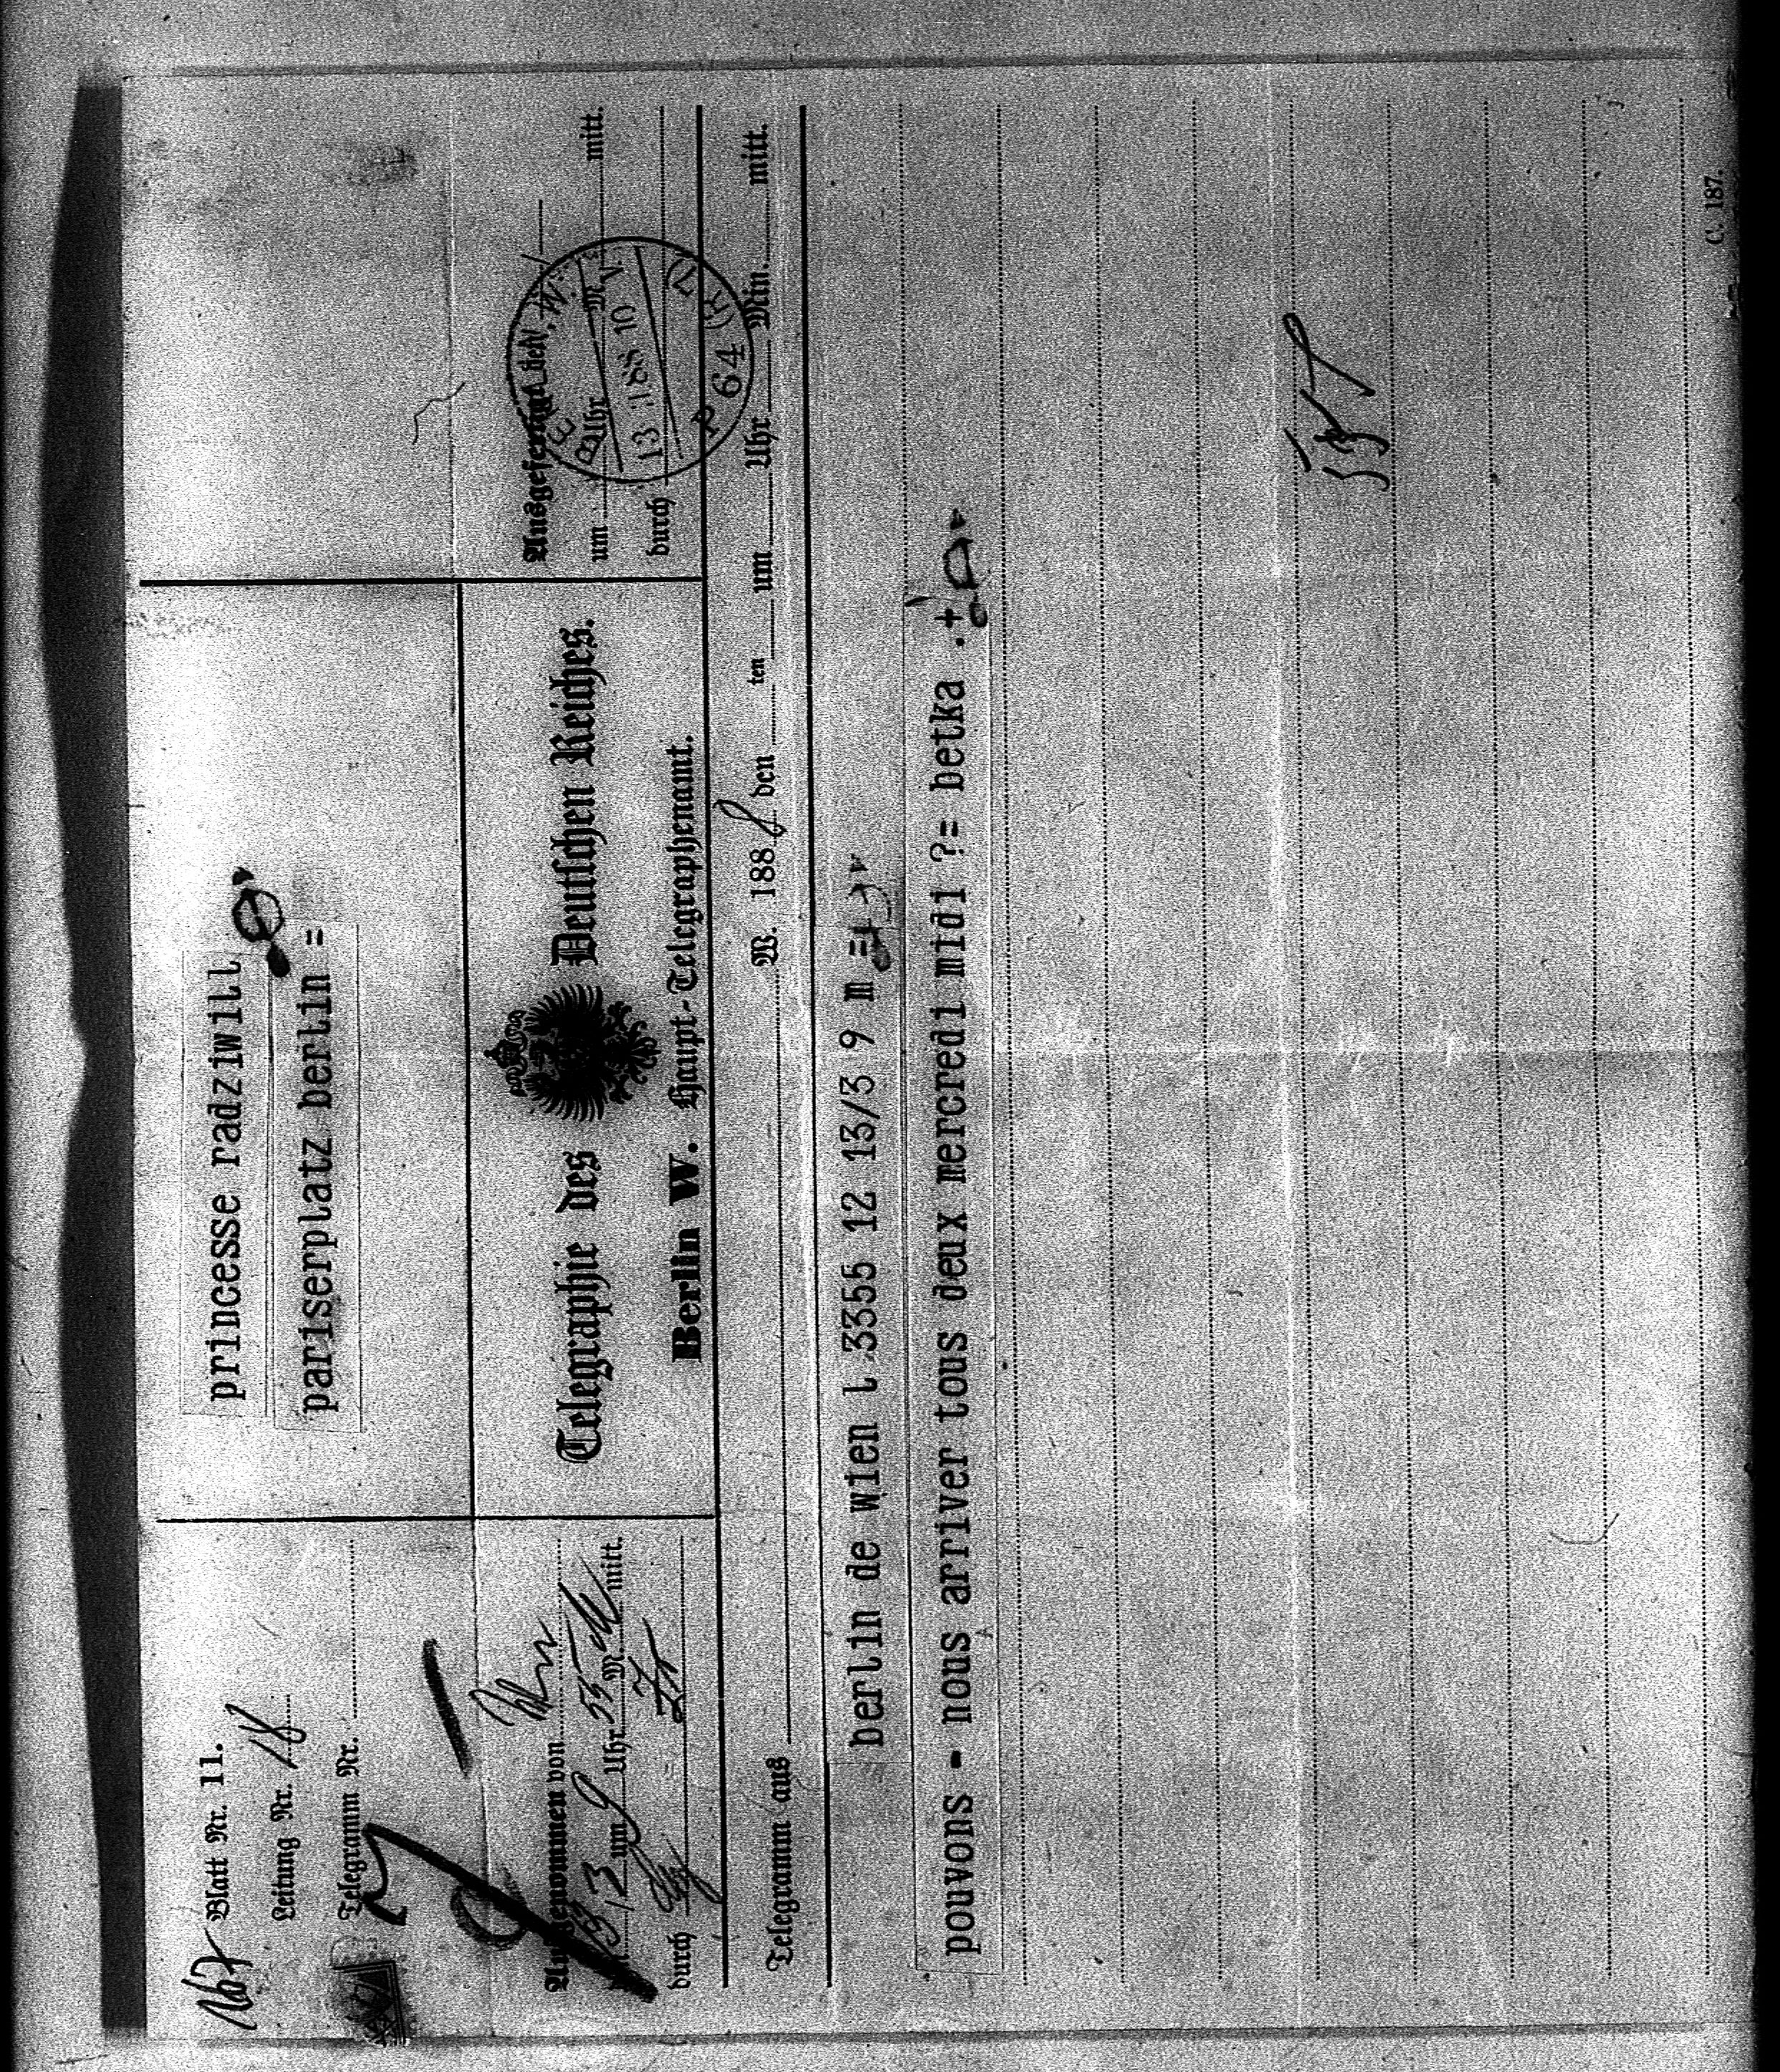 Blatt Nr. 11.
Leitung Nr. 18
Telegramm Nr.
princesse radziwill
pariserplatz berlin =
Angenommen von
13/3 um 9 Uhr 55 M. mitt.
durch
Telegraphie des Deutschen Reiches.
Berlin W. Haupt-Telegraphenamt.
Ausgefertigt
um Uhr M. mitt.
durch
13 3 88 10
P 64 (R)
Telegramm aus W. 1888 den ten um Uhr Min. mitt.
berlin de wien l 3355 12 13/3 9 m =
pouvons - nous arriver tous deux mercredi midi ?= betka .+
C. 187.